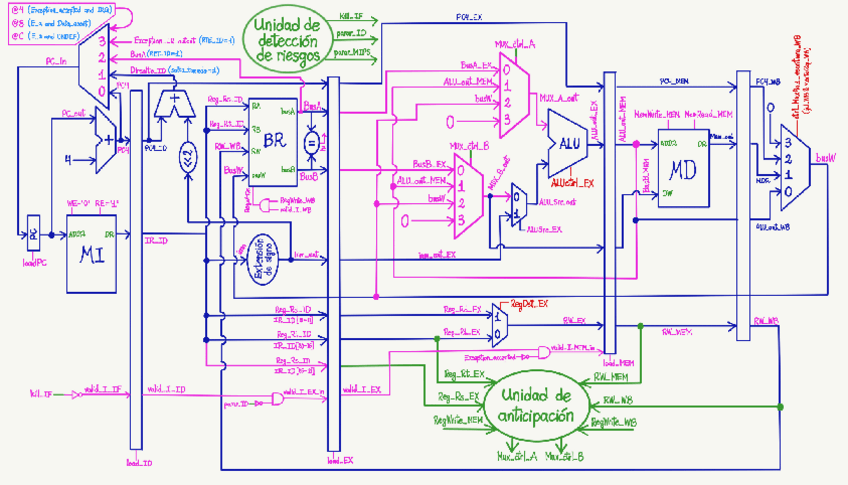 @4 (Exception_accepted and IRQ)
@8 (E_a and Data_abort)
@C (E_a and UNDEF)
PC_in
3
2
1
0
Exception_LR_output (RTE_ID=1)
BusA
Dirsalto_ID
PC4
PC_out
4
+
PC4
PC4_ID
+
<<2
Unidad de
detección
de riesgos
Kill_IF
parar_ID
parar_MIPS
PC4_EX
Reg_Rs_ID
Reg_Rt_ID
RW_WB
BusW
RA
RB
RW
busW
BR
busA
busB
BusA
BusB
=
RegWrite_WB
valid_I_WB
BusA_EX
ALU_out_MEM
busW
0
Mux_ctrl_A
0
1
2
3
MUX_A_out
BusB_EX
ALU_out_MEM
busW
0
Mux_ctrl_B
0
1
2
3
MUX_B_out
0
1
ALU_Src_out
ALUSrc_EX
ALU
ALUctrl_EX
ALU_out_EX
ALU_out_MEM
PC4_MEM
MemWrite_MEM
MemRead_MEM
ADDR
DR
MD
DW
BusB_MEM
Mem_out
MDR
PC4_WB
0
3
2
1
0
ALU_out_WB
busW
PC
loadPC
WE='0'
RE='1'
ADDR
DR
MI
IR_ID
Extensión
de signo
inm_ext
inm_ext_EX
Reg_Rs_EX
Reg_Rt_EX
RegDst_EX
1
0
RW_EX
RW_MEM
RW_WB
Exception_accepted
valid_I_MEM_in
load_MEM
Kill_IF
valid_I_IF
valid_I_ID
parar_ID
valid_I_EX_in
valid_I_EX
load_ID
load_EX
Reg_Rt_EX
Reg_Rs_EX
RegWrite_MEM
Unidad de
anticipación
RW_MEM
RW_WB
RegWrite_WB
Mux_ctrl_A
Mux_ctrl_B